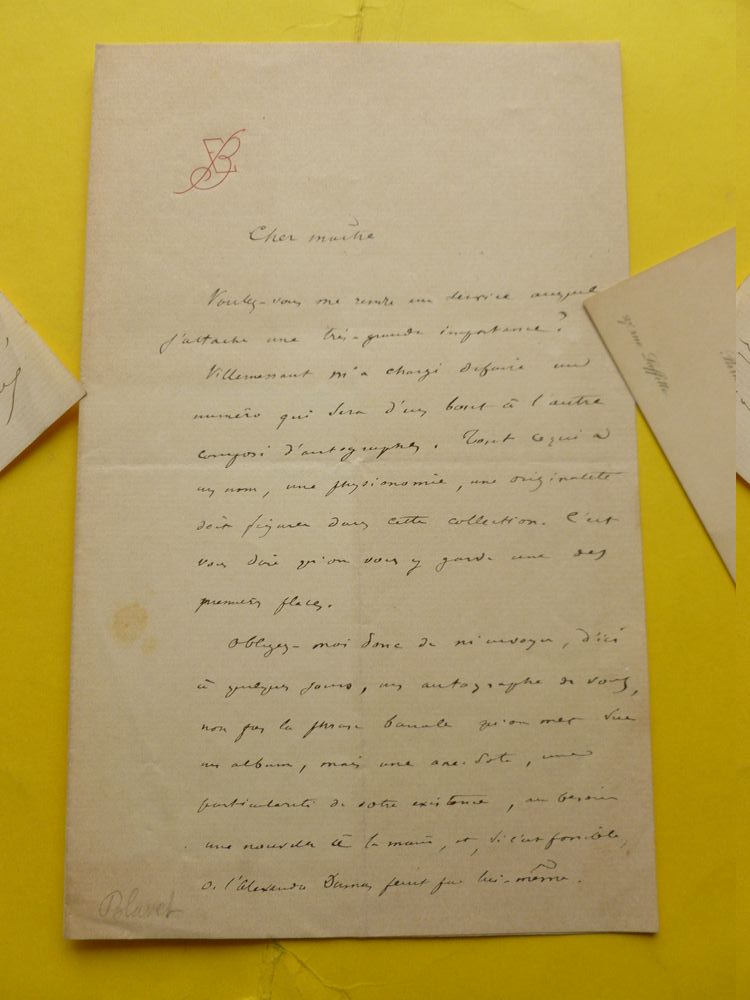 Cher maître
Voulez-vous me rendre un service auquel
j'attache une très-grande importance?
Villemessant m'a chargé de faire un
numéro qui sera d'un bout à l'autre
composé d'autographes. Tout ce qui a
un nom, une physionomie, une originalité
doit figurer dans cette collection. C'est
vous dire qu'on vous y garde une des
premières places.
Obligez-moi donc de m'envoyer, d'ici
à quelques jours, un autographe de vous,
non pas la phrase banale qu'on met sur
un album, mais une anecdote, une
particularité de votre existence, au besoin
une nouvelle à la main, et, si c'est possible,
l'Alexandre Dumas par lui-même.
Blavet
rue Laffitte